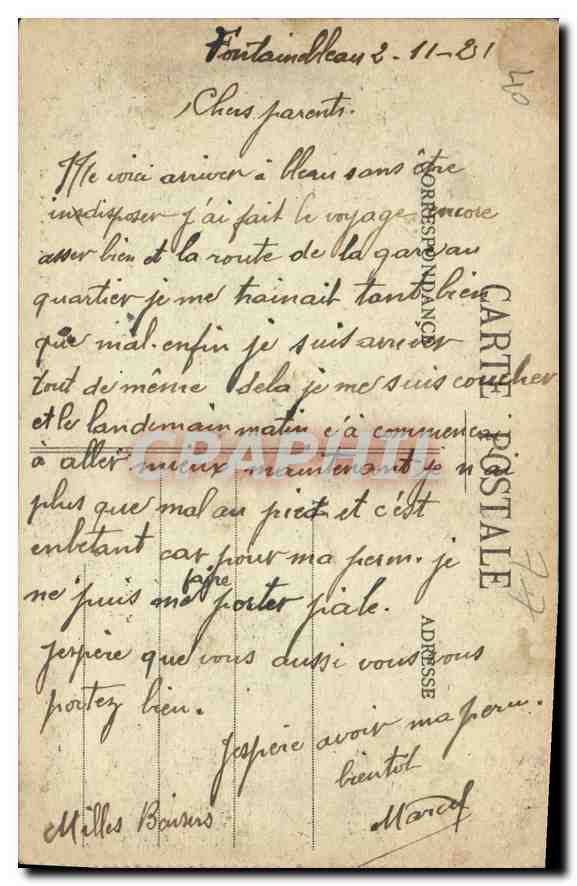 Fontainebleau 2-11-21
40
Chers parents.
Me voici arriver à bleau sans être
indisposer j'ai fait le voyage encore
asser bien et la route de la gare au
quartier je me trainait tant bien
que mal. enfin je suis arriver
tout de même dela je me suis coucher
et le landemain matin c'à commencé
à aller mieux maintenant je n'ai
plus que mal au pied et c'est
enbetant car pour ma perm. je
ne puis me faire porter pâle.
J'espère que vous aussi vous vous
portez bien.
J'espère avoir ma perm.
bientot
Milles Baisers
Marcel
CARTE POSTALE
CORRESPONDANCE
ADRESSE
77
CPAPHIL